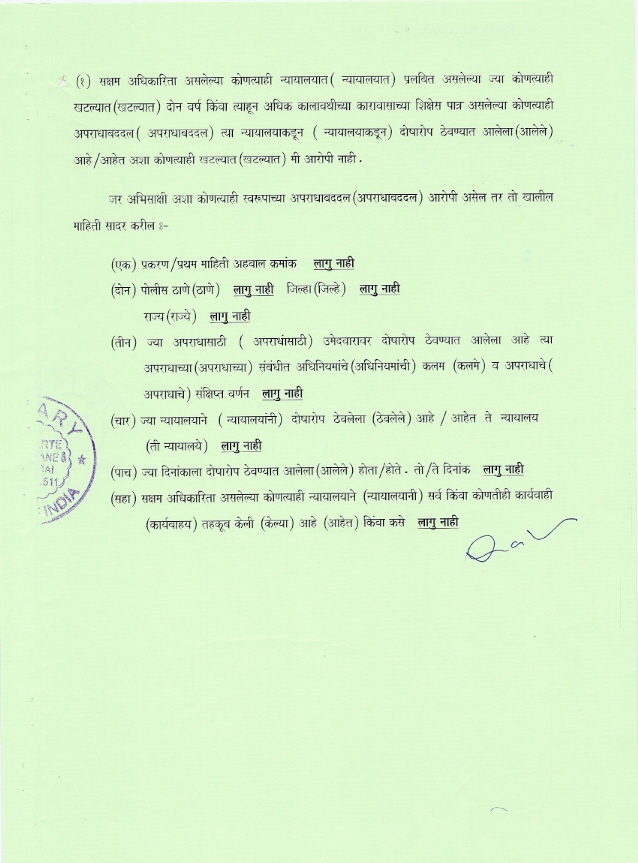 (१) सक्षम अधिकारिता असलेल्या कोणत्याही न्यायालयात( न्यायालयात) प्रलबित असलेल्या ज्या कोणत्याही
खटल्यात(खटल्यात) दोन वर्ष किंवा त्याहून अधिक कालावधीच्या कारावासाच्या शिक्षेस पात्र असलेल्या कोणत्याही
अपराधाबददल( अपराधाबददल) त्या न्यायालयाकडून ( न्यायालयाकडून) दोषारोप ठेवण्यात आलेला(आलेले)
आहे/आहेत अशा कोणत्याही खटल्यात(खटल्यात) मी आरोपी नाही.
जर अभिसाक्षी अशा कोणत्याही स्वरूपाच्या अपराधाबददल(अपराधाबददल) आरोपी असेल तर तो खालील
माहिती सादर करील ः-
(एक) प्रकरण/प्रथम माहिती अहवाल क्रमांक लागु नाही
(दोन) पोलीस ठाणे(ठाणे) लागु नाही जिल्हा(जिल्हे) लागु नाही
राज्य(राज्ये) लागु नाही
(तीन) ज्या अपराधासाठी ( अपराधांसाठी) उमेदवारावर दोषारोप ठेवण्यात आलेला आहे त्या
अपराधाच्या(अपराधाच्या) संबंधीत अधिनियमांचे(अधिनियमांची) कलम (कलमे) व अपराधाचे(
अपराधाचे) संक्षिप्त वर्णन लागु नाही
(चार) ज्या न्यायालयाने ( न्यायालयांनी) दोषारोप ठेवलेला (ठेवलेले) आहे / आहेत ते न्यायालय
(ती न्यायालये) लागु नाही
(पाच) ज्या दिनांकाला दोषारोप ठेवण्यात आलेला(आलेले) होता/होते. तो/ते दिनांक लागु नाही
(सहा) सक्षम अधिकारिता असलेल्या कोणत्याही न्यायालयाने (न्यायालयानी) सर्व किंवा कोणतीही कार्यवाही
(कार्यवाहय) तहकूब केली (केल्या) आहे (आहेत) किंवा कसे लागु नाही
ARY
RTE
ANE &
AI
511
INDIA